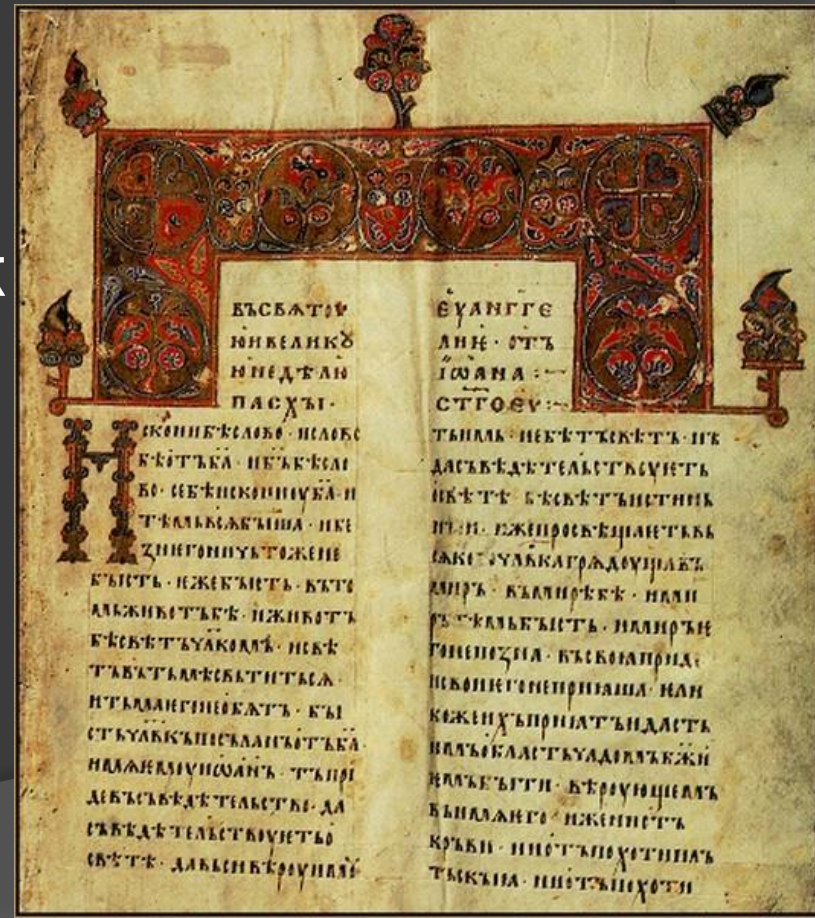 ВЪСВѦТОУ
ЮИВЕЛИКꙊ
ЮНЕДѢЛЮ
ПАСХЫ·
Исконибѣслово·ислово
бѣотъб҃а·иб҃ъбѣсло
во·себѣисконииуб҃а·и
тѣмьвсѧбыша·ибе
ꙁнегоничьтожене
бысть·ѥжебысть·въто
мьживотъбѣ·иживотъ
бѣсвѣтъч҃лкомъ·исвѣ
тъвътьмѣсвьтитьсѧ·
итьмаѥгонеобѧтъ·бы
стьч҃лвкъпосъланъотъб҃а·
имѧѥмоуиѡанъ·тъпри
девъсъвѣдѣтельство·да
съвѣдѣтельствоуѥтьо
свѣтѣ·давьсивѣроуимоуть
ЕУАНГГЕ
ЛИѤ·ОТЪ
ІѠАНА:~
СТ҃ГОЕУ:~
тьнимь·небѣтъсвѣтъ·нъ
дасъвѣдѣтельствоуѥть
освѣтѣ·бѣсвѣтъистинь
нꙑи·ижепросвѣщаѥтьвь
сѧкогоч҃лвкагрѧдоущавъ
миръ·вьмирѣбѣ·ими
ръ·тѣмьбысть·имиръѥ
гонепоꙁна·въсвоꙗприде
исвоиѥгонеприꙗша·ели
кожеихъприꙗтъидасть
имъобластьчадомъб҃жи
ѥмъбыти·вѣроующемъ
въимѧѥго·иженеотъ
кръви·ниотъпохотимѧ
тьскыꙗ·ниотъпохоти